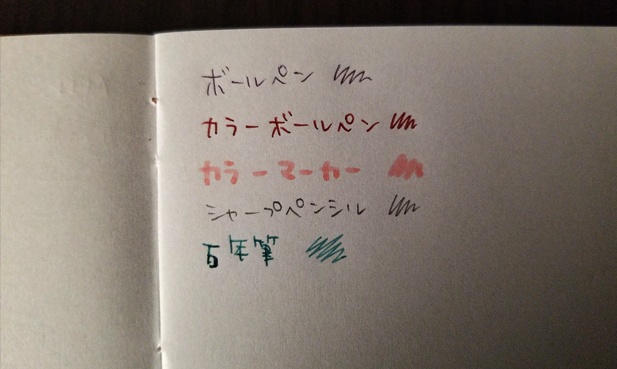 ボールペン
カラーボールペン
カラーマーカー
シャープペンシル
万年筆